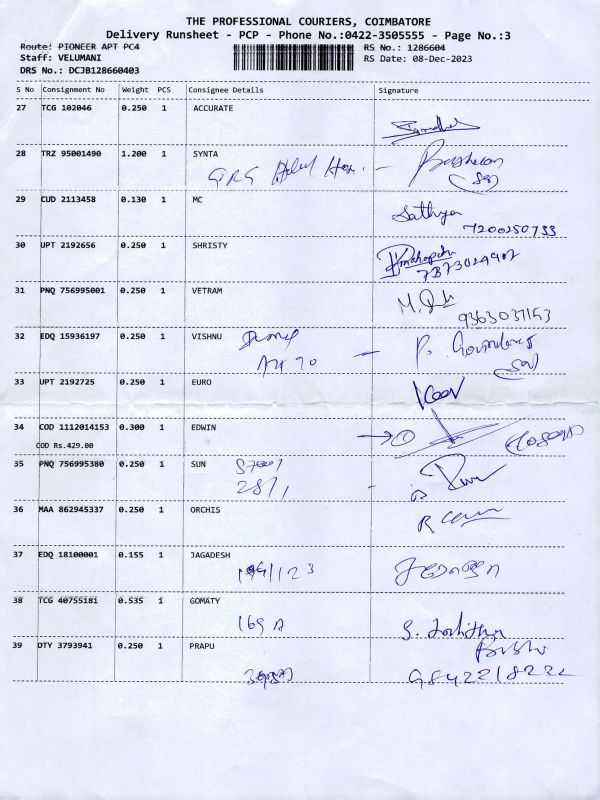 THE PROFESSIONAL COURIERS, COIMBATORE
Delivery Runsheet - PCP - Phone No.:0422-3505555 - Page No.:3
Route: PIONEER APT PC4 RS No.: 1286604
Staff: VELUMANI RS Date: 08-Dec-2023
DRS No.: DCJB128660403
S No Consignment No Weight PCS Consignee Details Signature
27 TCG 102046 0.250 1 ACCURATE
28 TRZ 95001490 1.200 1 SYNTA
29 CUD 2113458 0.130 1 MC
Sathya
7200250733
30 UPT 2192656 0.250 1 SHRISTY
7373029907
31 PNQ 756995001 0.250 1 VETRAM
9363037153
32 EDQ 15936197 0.250 1 VISHNU
33 UPT 2192725 0.250 1 EURO
34 COD 1112014153 0.300 1 EDWIN
COD Rs.429.00
35 PNQ 756995380 0.250 1 SUN
36 MAA 862945337 0.250 1 ORCHIS
37 EDQ 18100001 0.155 1 JAGADESH
38 TCG 40755181 0.535 1 GOMATY
169 A
39 DTY 3793941 0.250 1 PRAPU
9842218222